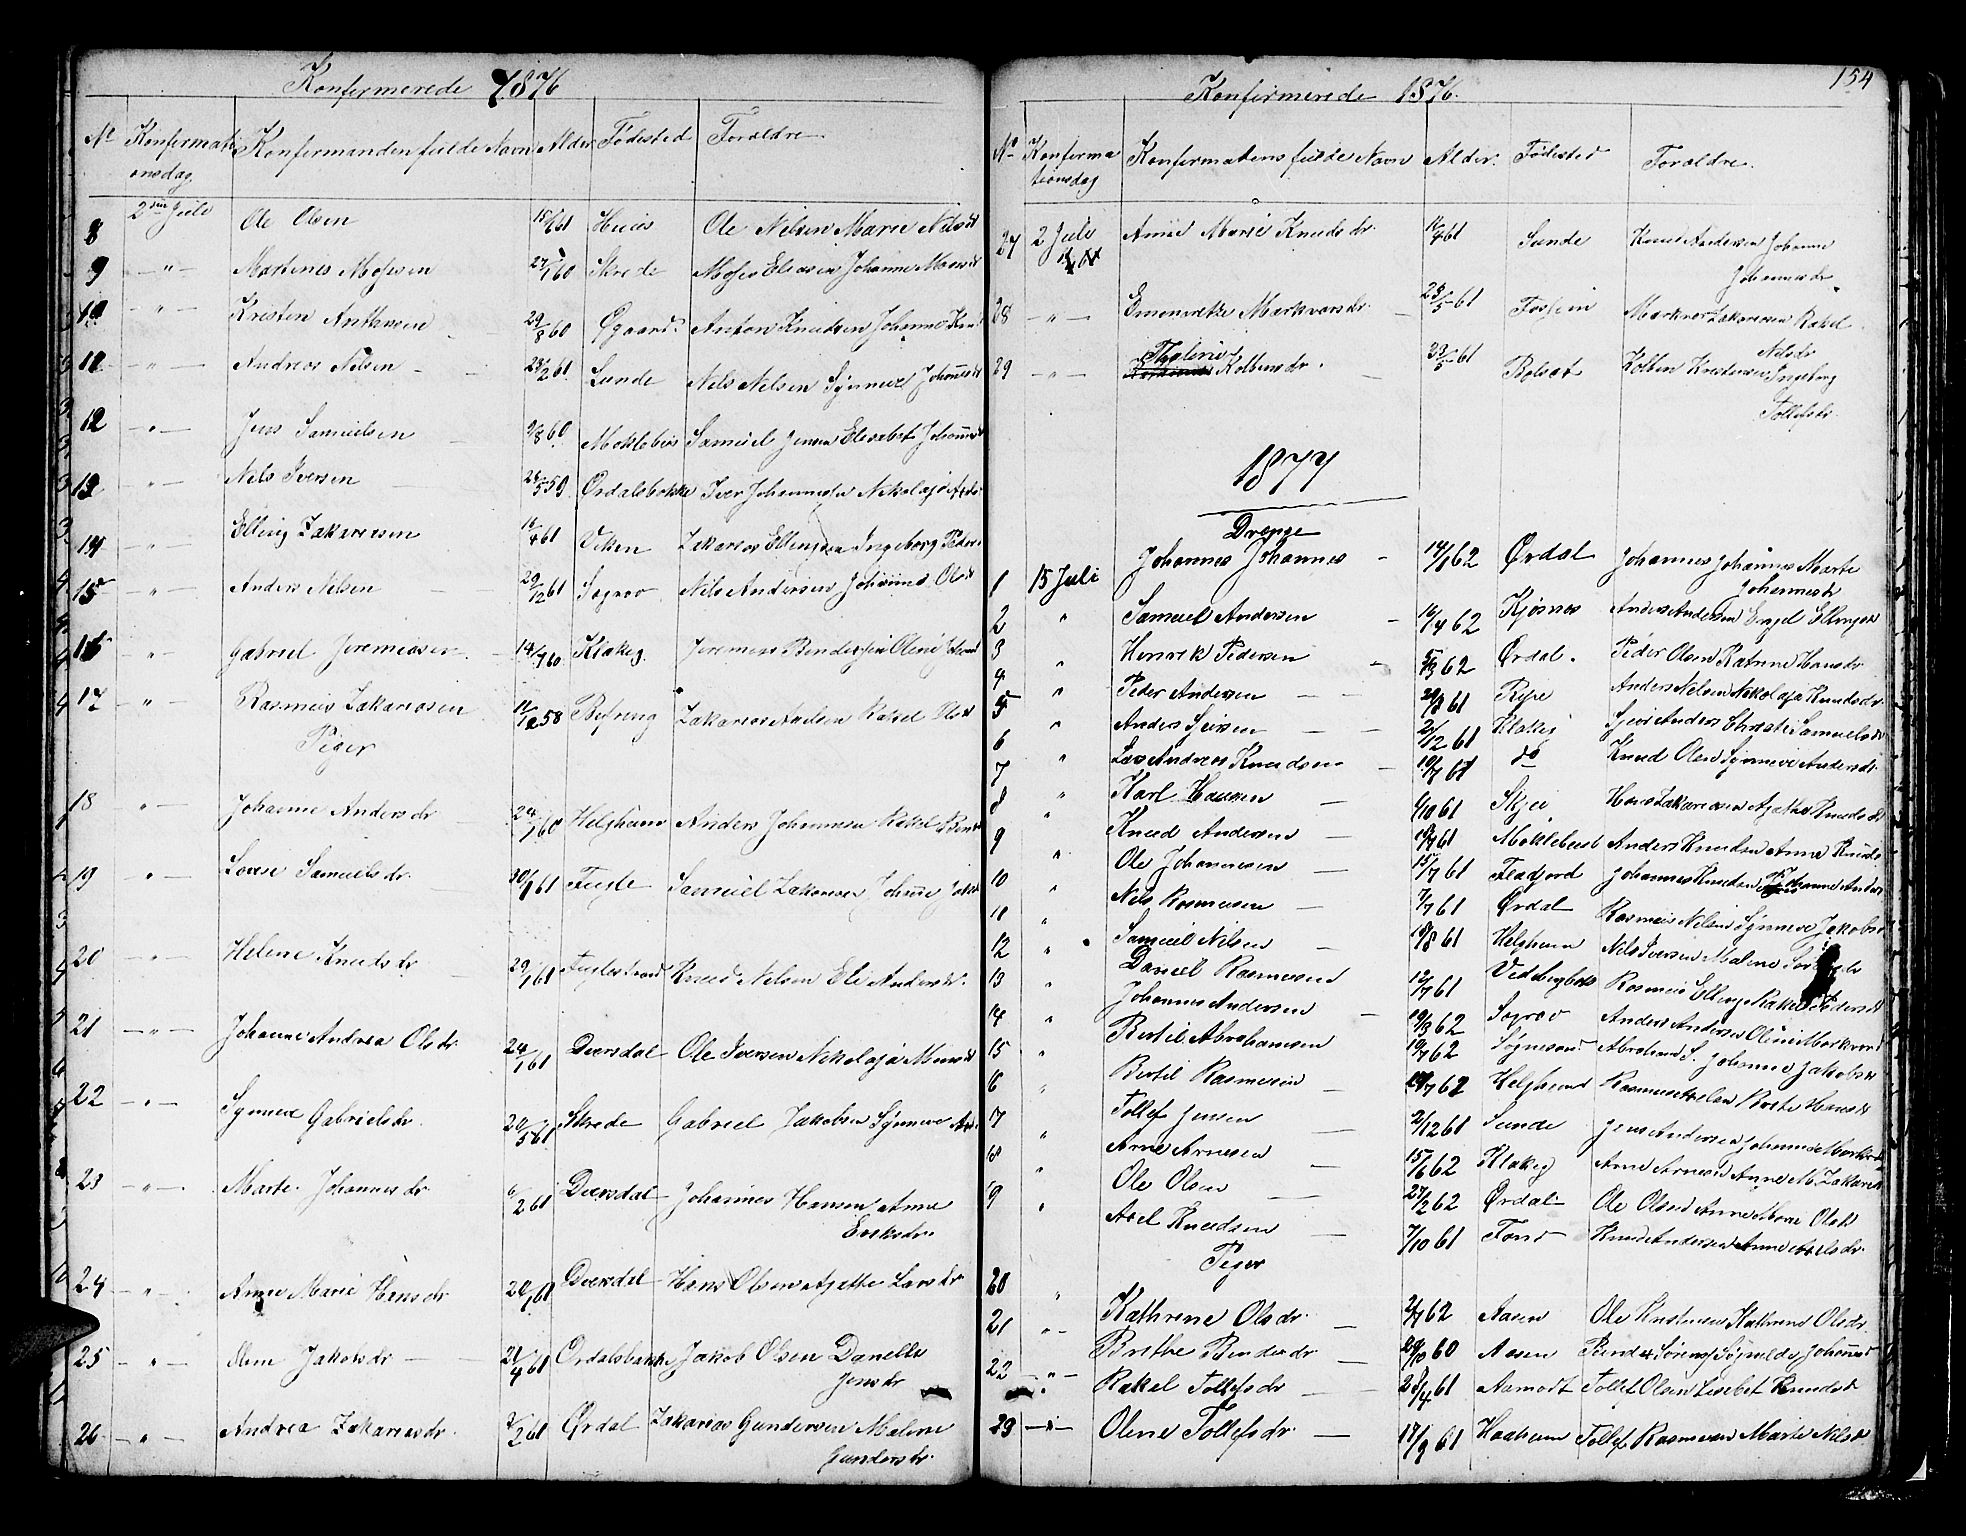 Konfermerede 1876
No Konfermati Konfermanden fulde Navn Alder Fødested Foraldre
onsdag
8 2den Juli Ole Olsen 15/161 Huus Ole Nilsen Marie Nilsdt
9 — " — Martines Mosesen 27/160 Skrede Moses Eliasen Johanne Monsdt
10 " — Kristen Antonsen 29/860 Øgaard Anton Knudsen Johanne
11 — " — Andreas Nilsen 28/261 Sunde Nils Nilsen Synneve Johannesdt
12 — " — Jens Samuelsen 9/860 Moklebus Samuel Jensen Elisabet Johannesdt
13 " — Nils Iversen 24/559 Ordalsbakke Iver Johannesen Nikolaja
14 " — Elling Zakariasen 16/461 Viken Zakarias Ellingsen Ingeborg Peders
15 — " — Anders Nilsen 29/1261 Sogrov Nils Andersen Johanne Olsdt
16 " — Gabriel Jeremiasen 14/760 Klakeg Jeremias Bendixsen Oline
17 — " — Rasmus Zakariasen 11/1258 Befring Zakarias Rakel Olsdt
Piger
18 — " — Johanne Andersdr 24/160 Helgheim Anders Johannesen Rakel
19 — " — Lovise Samuelsdr. 30/161 Fugle Samuel Zakariasen
20 — " — Helene Knudsdr 29/161 Fuglestrand Knud Nilsen Eli Andersdr.
21 — " — Johanne Andrea Olsdr 24/161 Dvergsdal Ole Iversen Nikolaja Monsdt
22 — " — Synneve Gabrielsdr. 20/561 Skrede Gabriel Jakobsen Synneve
23 — " — Marte Johannesdr. 6/261 Dversdal Johannes Hansen Anne
Eriksdr.
24 — " — Anne Marie Hansdr 20/161 Dversdal Hans Olsen Agathe Larsdr
25 — " — Oline Jakobsdr 21/461 Ordalsbakke Jakob Olsen Danelle
Jensdr
26 — " — Andrea Zakariasdr. 2/261 Ørdal Zakarias Gundersen Malene
Gundersdr.
154
Konfirmerede 1876.
No Konferma Konfermatens fulde Navn Alder. Fødested Foraldre.
tionsdag
27 2 Juli Anne Marie Knudsdr. 16/461 Sunde Knud Andersen Johanne
Johannesdr.
28 — " — Emonretke Markvarsdr. 23/5 61 Fosheim Markvar Zakariasen Rakel
Nilsdr
29 — " — Kolbensdr. 23/5 61 Bolsæt Kolben Kristensen Ingeborg
Tollefsdr.
1877
Drenge
1 15 Juli Johannes Johannes — 14/162 Ørdal Johannes Johannes Marte
Johannesdt
2 " Samuel Andersen — 16/462 Kjøsnes Anders Andersen Engel Ellingsdt
3 " Henrik Pedersen — 5/362 Ørdal. Peder Olsen Katrine Hansdr
4 " Peder Andersen — 20/861 Rype Anders Nilsen Nikolaja Knudsdr.
5 " Anders Sjursen — 2/1261 Klakeg Sjur Anders Christi Samuelsdt
6 " Lars Andreas Knudsen — 10/761 do Knud Olsen Synneve Andersdr.
7 " Karl Hansen — 6/1061 Skjei Hans Zakariasen Agathe Knudsdt
8 " Knud Andersen — 10/761 Moklebust Anders Knudsen Anne Knuds
9 " Ole Johannesen — 15/761 Flafjord Johannes Knudsen Johanne Anders
10 " Nils Rasmusen — 7/761 Ørdal Rasmus Nilsen Synneve Jakobs
11 " Samuel Nilsen — 18/861 Helgheim Nils Iversen Malene
12 " Daniel Rasmusen 12/761 Vedvigbøtn Rasmus Elling Rakel Pedersdt
13 " Johannes Andersen — 19/362 Sogrov Anders Andersen Oline Markvard
14 " Bertil Abrahamsen 19/762 Søgnesand Abraham S. Johanne Jakobsdt
15 " Bertil Rasmusen — 14/762 Helgheim Rasmus Marte Hansdt
6 " Tollef Jensen — 2/1261 Sunde Jens Andersen Johanne Markvards
7 " Arne Arnesen — 15/662 Klakeg Arne Arnesen Anne M. Zakariasdt
8 " Ole Olsen — 27/262 Ørdal Ole Olsen Anne Marie Olsdt
9 " Axel Knudsen — 7/1061 Fond Knud Andersen Anne Axelsdr.
Piger
20 " Kathrine Olsdr. — 2/762 Aasen Ole Kristensen Kathrine Olsdr.
21 " — Brethe Bendersdr. — 29/1060 Aasen Bender Sørens Søgnilde Johannesdt
22 — " — Rakel Tollefsdr — 28/461 Aamodt Tollef Olsen Lisebet Knudsdt
29 — " — Oline Tollefsdr. — 17/961 Haaheim Tollef Rasmusen Marte Nilsdt